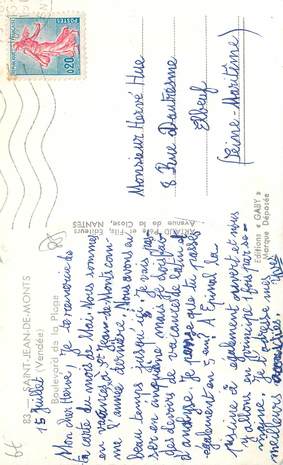 83. - SAINT-JEAN-DE-MONTS
(Vendée)
Boulevard de la Plage
15 Juillet
Mon cher Hervé, Je te remercie de
ta carte du mois de Mai. Nous sommes
en vacances à St Jean-de-Monts com-
me l'année dernière. Nous avons
beau temps jusqu'ici. Je vais pas-
ser en cinquième mais je
des devoirs de vacances de calcul
d'analyse. Je pense que tu passes
également en 5ème. A Epinal la
piscine a également ouvert et nous
y allons en principe 1 fois par se-
maine. Je t'adresse mes
meilleurs amitiés.
ARTAUD Père et Fils, Éditeurs
Avenue de la Close, NANTES
Editions « GABY »
Marque Déposée
Monsieur Hervé Hue
8 Rue Dautresme
Elbeuf
(Seine-Maritime)
POSTES
0,20